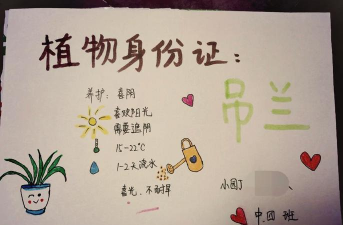 植物身份证：
吊兰
养护：喜阴
喜欢阳光
需要遮阴
15-22℃
1-2天浇水
喜光、不耐旱
小园丁
中四 班